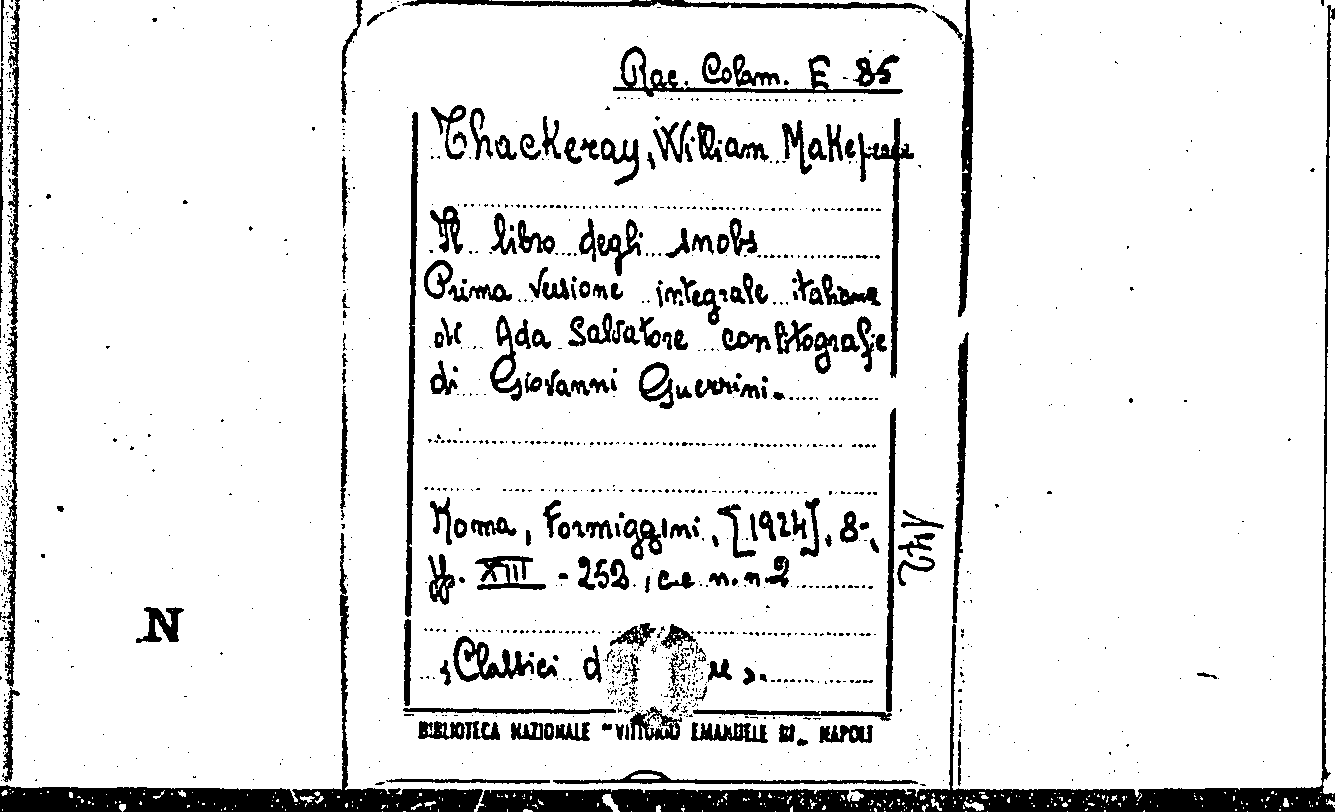 Rac. Colam. E 85
Thackeray, William Makepeace
Il libro degli snobs
Prima versione integrale italiana
di Ada Salvatore con litografie
di Giovanni Guerrini.
Roma, Formiggini, [1924], 8°,
pp. XIII - 252, c.e n.n. 2
«Classici d
re».
BIBLIOTECA NAZIONALE "VITTORIO EMANUELE III„ NAPOLI
142
N